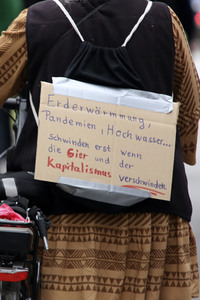 Erderwärmung,
Pandemien, Hochwasser...
schwinden erst wenn
die Gier und der
Kapitalismus verschwindet